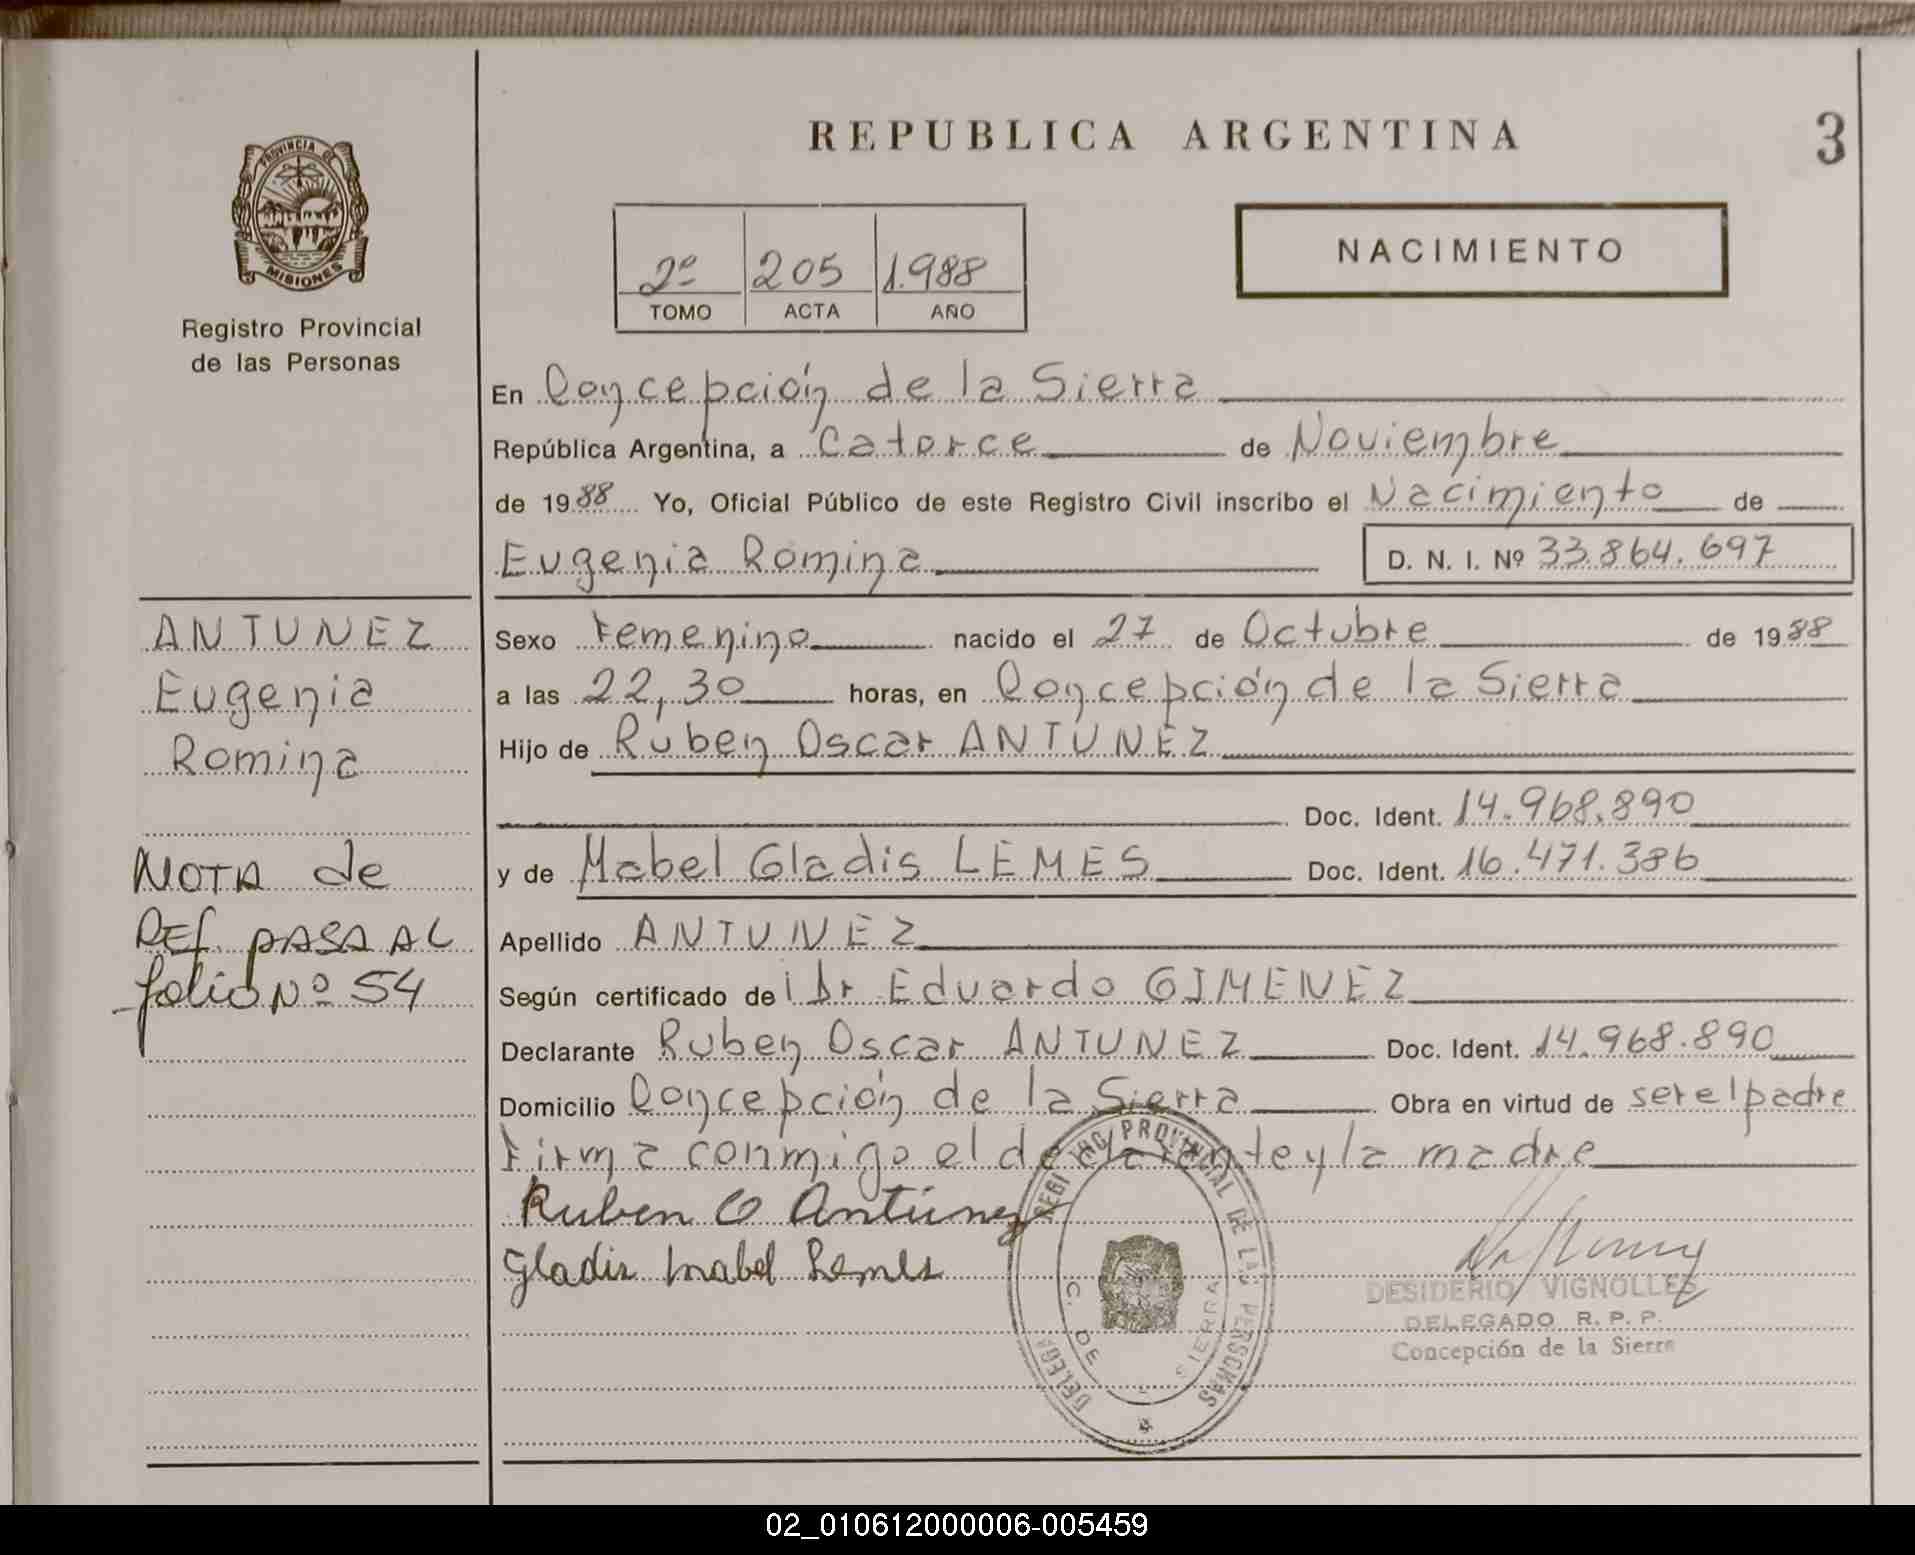 REPUBLICA ARGENTINA
3
PROVINCIA DE
MISIONES
Registro Provincial
de las Personas
NACIMIENTO
2º 205 1.988
TOMO ACTA AÑO
En Concepción de la Sierra
República Argentina, a Catorce de Noviembre
de 1988 Yo, Oficial Público de este Registro Civil inscribo el Nacimiento de
Eugenia Romina D. N. I. Nº 33.864.697
ANTUNEZ
Eugenia
Romina
NOTA de
REf. PASA AL
folio Nº 54
Sexo Femenino nacido el 27 de Octubre de 1988
a las 22,30 horas, en Concepción de la Sierra
Hijo de Ruben Oscar ANTUNEZ
Doc. Ident. 14.968.890
y de Mabel Gladis LEMES Doc. Ident. 16.471.386
Apellido ANTUNEZ
Según certificado de Dr Eduardo GIMENEZ
Declarante Ruben Oscar ANTUNEZ Doc. Ident. 14.968.890
Domicilio Concepción de la Sierra Obra en virtud de ser el padre
Firma conmigo el declarante y la madre
Ruben O Antúnez
Gladis Mabel Lemes
REGISTRO PROVINCIAL DE LAS PERSONAS
C. DE SIERRA
DESIDERIO VIGNOLLES
DELEGADO R. P. P.
Concepción de la Sierra
02_010612000006-005459